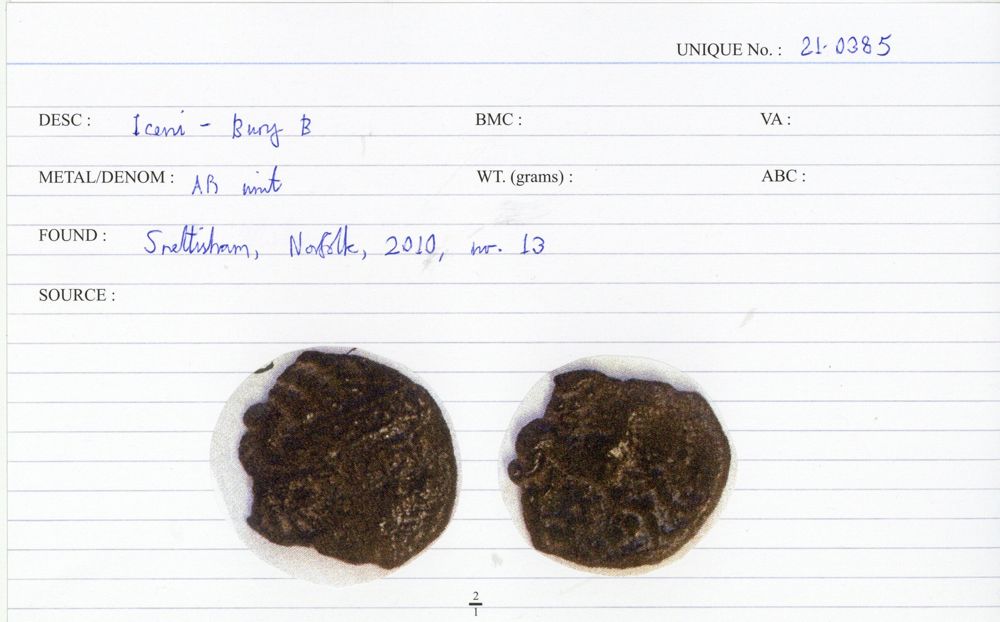 UNIQUE No. : 21-0385
DESC : Iceni - Bury B BMC : VA :
METAL/DENOM : AR unit WT. (grams) : ABC :
FOUND : Snettisham, Norfolk, 2010, no. 13
SOURCE :
2
1